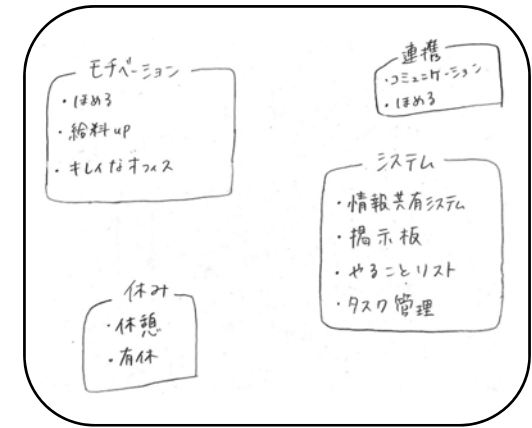 モチベーション
・ほめる
・給料up
・キレイなオフィス
連携
・コミュニケーション
・ほめる
システム
・情報共有システム
・掲示板
・やることリスト
・タスク管理
休み
・休憩
・有休